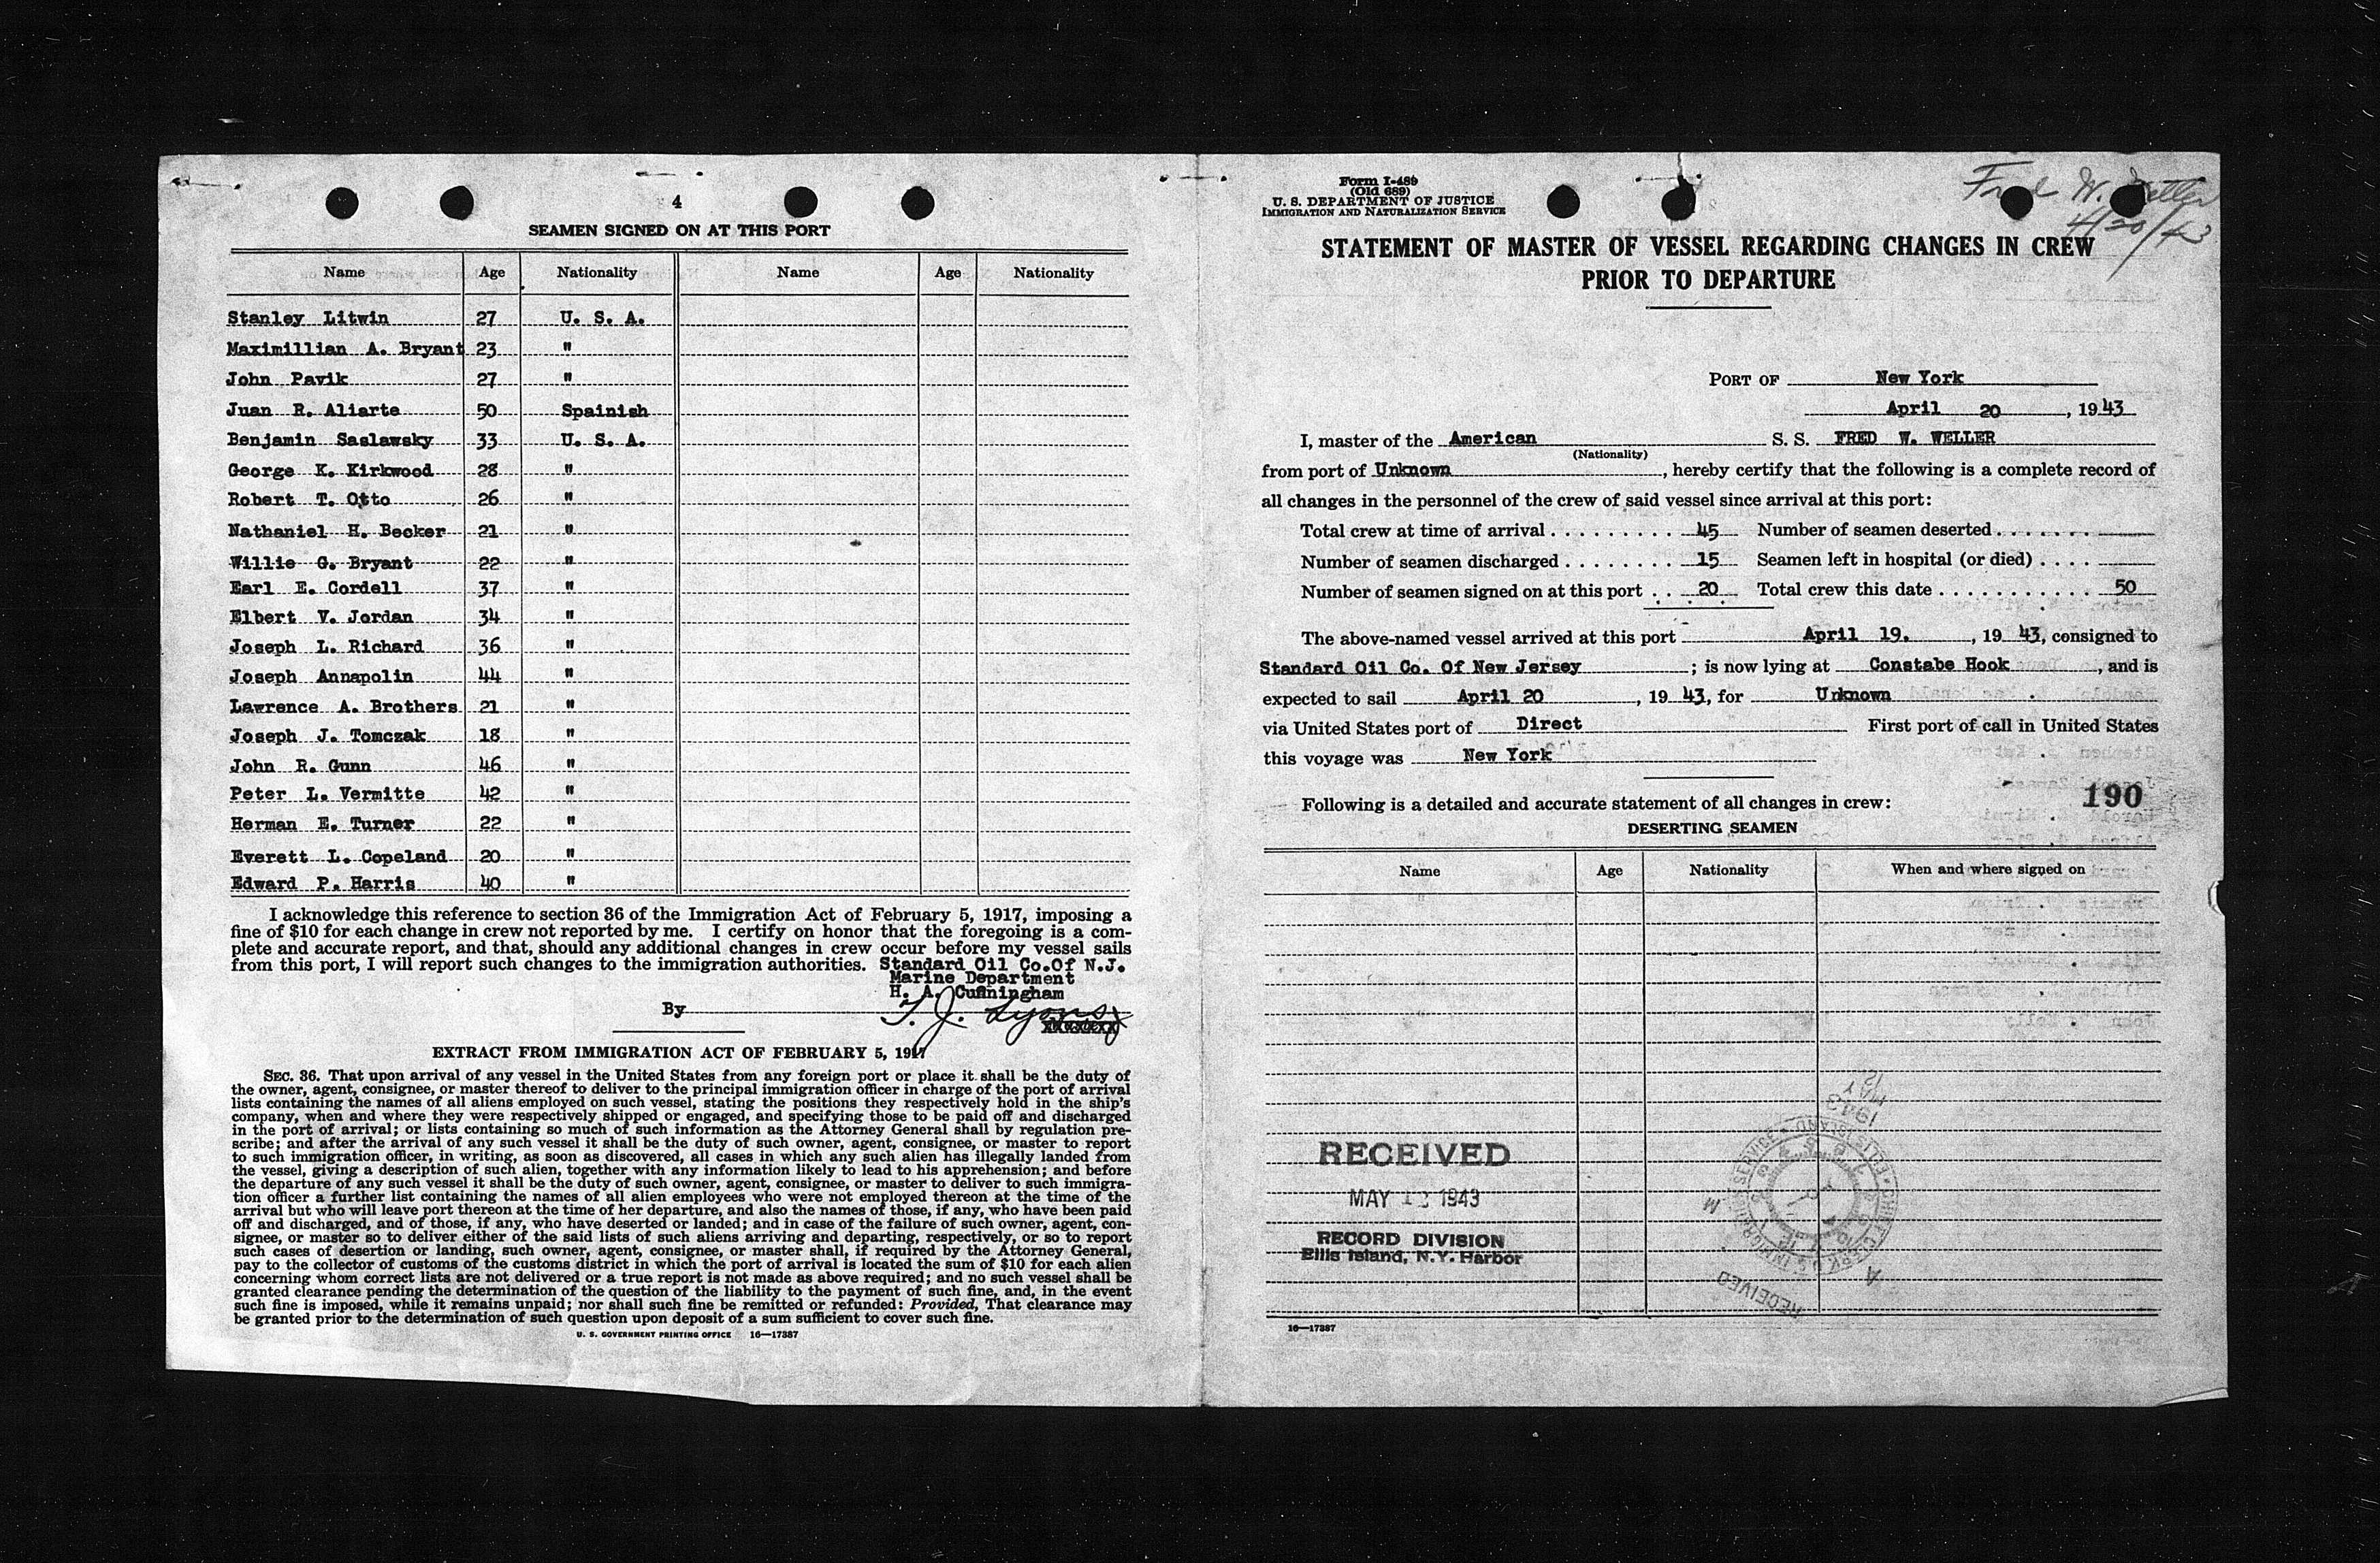 4
SEAMEN SIGNED ON AT THIS PORT
Name Age Nationality Name Age Nationality
Stanley Litwin 27 U. S. A.
Maximillian A. Bryant 23 "
John Pavik 27 "
Juan R. Aliarte 50 Spainish
Benjamin Saslawsky 33 U. S. A.
George K. Kirkwood 28 "
Robert T. Otto 26 "
Nathaniel H. Becker 21 "
Willie G. Bryant 22 "
Earl E. Cordell 37 "
Elbert V. Jordan 34 "
Joseph L. Richard 36 "
Joseph Annapolin 44 "
Lawrence A. Brothers 21 "
Joseph J. Tomczak 18 "
John R. Gunn 46 "
Peter L. Vermitte 42 "
Herman E. Turner 22 "
Everett L. Copeland 20 "
Edward P. Harris 40 "
I acknowledge this reference to section 36 of the Immigration Act of February 5, 1917, imposing a
fine of $10 for each change in crew not reported by me. I certify on honor that the foregoing is a com-
plete and accurate report, and that, should any additional changes in crew occur before my vessel sails
from this port, I will report such changes to the immigration authorities. Standard Oil Co.Of N.J.
Marine Department
H. A. Cunningham
By T. J. Lyons
EXTRACT FROM IMMIGRATION ACT OF FEBRUARY 5, 1917
SEC. 36. That upon arrival of any vessel in the United States from any foreign port or place it shall be the duty of
the owner, agent, consignee, or master thereof to deliver to the principal immigration officer in charge of the port of arrival
lists containing the names of all aliens employed on such vessel, stating the positions they respectively hold in the ship's
company, when and where they were respectively shipped or engaged, and specifying those to be paid off and discharged
in the port of arrival; or lists containing so much of such information as the Attorney General shall by regulation pre-
scribe; and after the arrival of any such vessel it shall be the duty of such owner, agent, consignee, or master to report
to such immigration officer, in writing, as soon as discovered, all cases in which any such alien has illegally landed from
the vessel, giving a description of such alien, together with any information likely to lead to his apprehension; and before
the departure of any such vessel it shall be the duty of such owner, agent, consignee, or master to deliver to such immigra-
tion officer a further list containing the names of all alien employees who were not employed thereon at the time of the
arrival but who will leave port thereon at the time of her departure, and also the names of those, if any, who have been paid
off and discharged, and of those, if any, who have deserted or landed; and in case of the failure of such owner, agent, con-
signee, or master so to deliver either of the said lists of such aliens arriving and departing, respectively, or so to report
such cases of desertion or landing, such owner, agent, consignee, or master shall, if required by the Attorney General,
pay to the collector of customs of the customs district in which the port of arrival is located the sum of $10 for each alien
concerning whom correct lists are not delivered or a true report is not made as above required; and no such vessel shall be
granted clearance pending the determination of the question of the liability to the payment of such fine, and, in the event
such fine is imposed, while it remains unpaid; nor shall such fine be remitted or refunded: Provided, That clearance may
be granted prior to the determination of such question upon deposit of a sum sufficient to cover such fine.
U. S. GOVERNMENT PRINTING OFFICE 16—17387
Form I-489
(Old 689)
U. S. DEPARTMENT OF JUSTICE
IMMIGRATION AND NATURALIZATION SERVICE
Fred W. Weller
4/20/43
STATEMENT OF MASTER OF VESSEL REGARDING CHANGES IN CREW
PRIOR TO DEPARTURE
PORT OF New York
April 20, 1943
I, master of the American S. S. FRED W. WELLER
(Nationality)
from port of Unknown, hereby certify that the following is a complete record of
all changes in the personnel of the crew of said vessel since arrival at this port:
Total crew at time of arrival . . . . . . . . . 45 Number of seamen deserted . . . . . . .
Number of seamen discharged . . . . . . . . 15 Seamen left in hospital (or died) . . . .
Number of seamen signed on at this port . . 20 Total crew this date . . . . . . . . . . . 50
The above-named vessel arrived at this port April 19., 1943, consigned to
Standard Oil Co. Of New Jersey; is now lying at Constabe Hook, and is
expected to sail April 20, 1943, for Unknown
via United States port of Direct First port of call in United States
this voyage was New York
Following is a detailed and accurate statement of all changes in crew:
190
DESERTING SEAMEN
Name Age Nationality When and where signed on
RECEIVED
MAY 1943
RECORD DIVISION
Ellis Island, N.Y. Harbor
1943
MAY
12
RECEIVED
16—17387